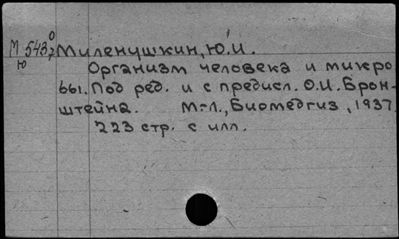 М 543/0 Миленушкин, Ю.И.
Ю Организм человека и микро
бы. Под ред. и с предисл. О.И. Брон-
штейна. М-Л., Биомедгиз, 1937
223 стр. с илл.